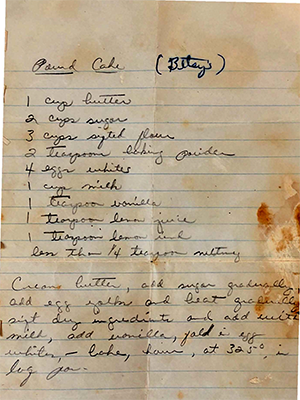 Pound Cake (Betsy's)
1 cup butter
2 cups sugar
3 cups sifted flour
2 teaspoon baking powder
4 eggs whites
1 cup milk
1 teaspoon vanilla
1 teaspoon lemon juice
1 teaspoon lemon rind
less than 1/4 teaspoon nutmeg
Cream butter, add sugar gradually,
add egg yolks and beat gradually
sift dry ingredients and add with
milk, add vanilla, fold in egg
whites, – bake, hour, at 325°, in
pan.